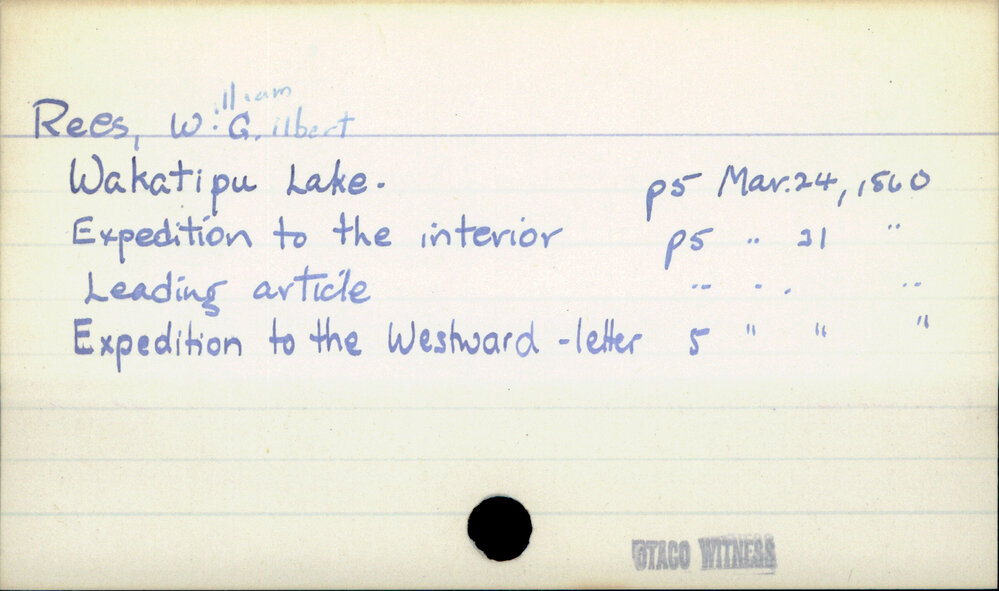 Rees, William Gilbert
Wakatipu Lake. p5 Mar. 24, 1860
Expedition to the interior p5 " 31 "
Leading article " " "
Expedition to the Westward - letter 5 " " "
OTAGO WITNESS